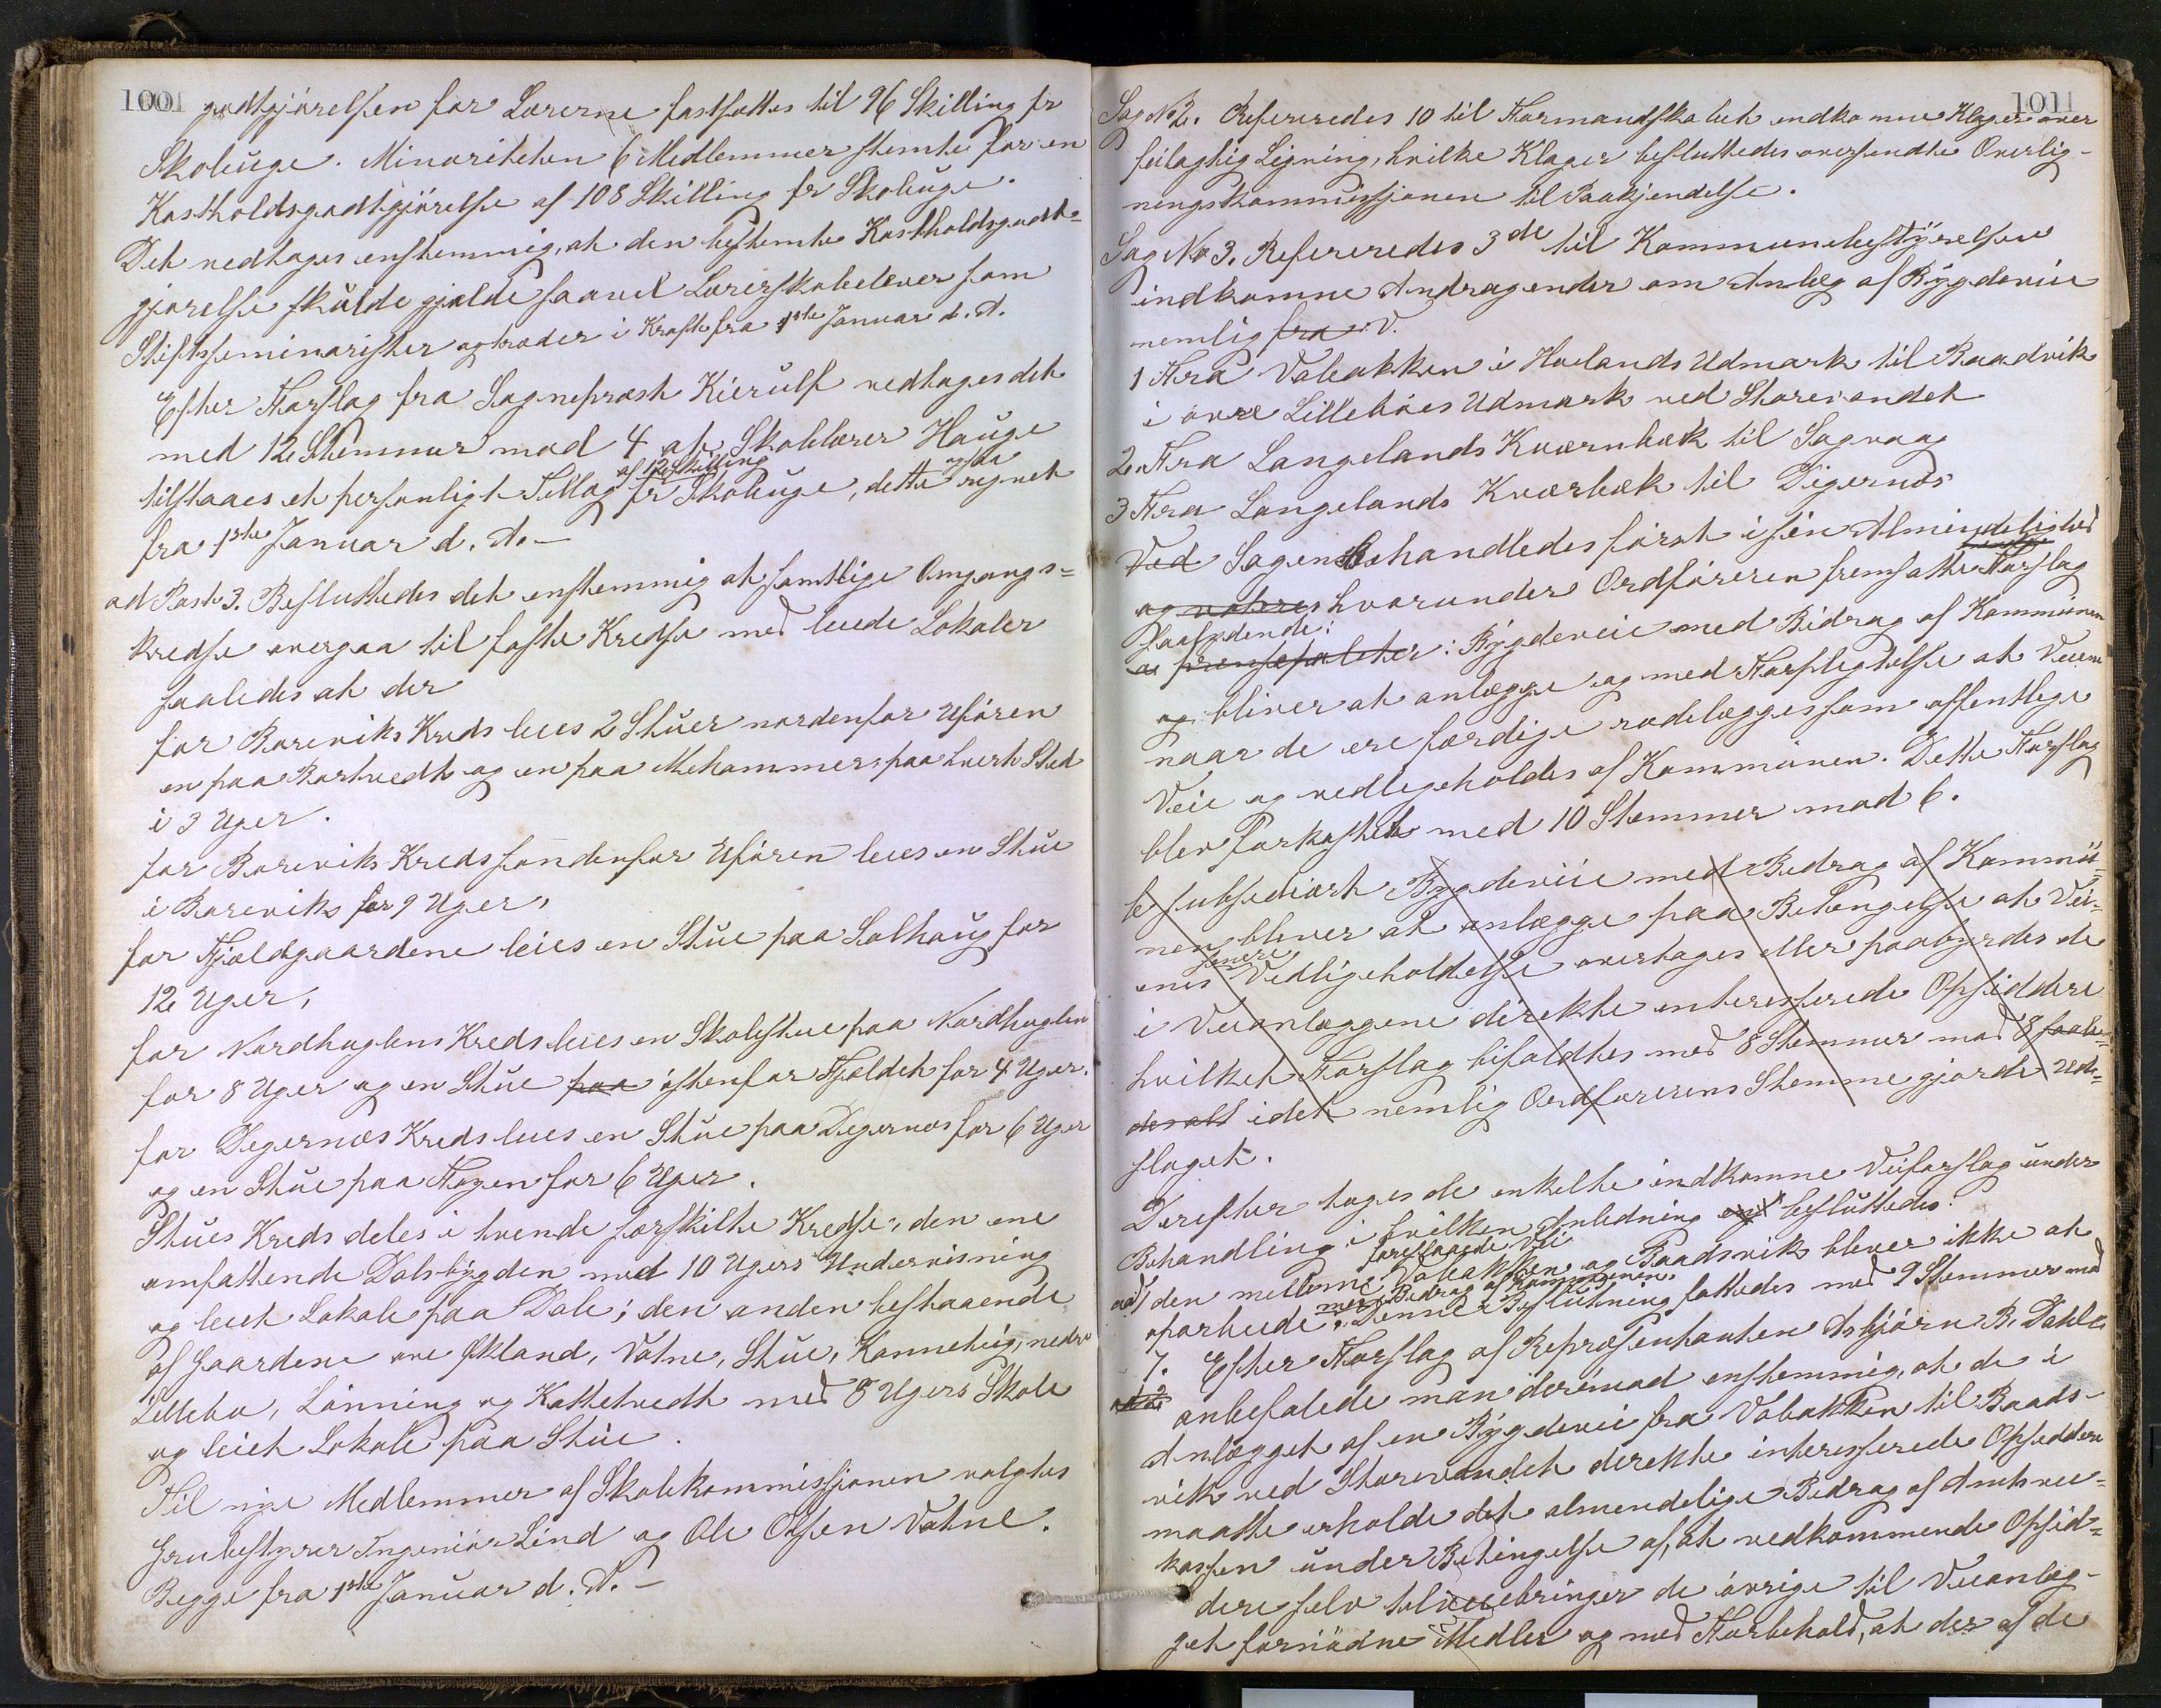 1001
godtgjörelsen for Lærerne fastsattes til 96 Skilling pr
Skoleuge. Minoriteten 6 Medlemmer stemte for en
Kostholdsgodtgjörelse af 108 Skilling pr Skoleuge.
Det vedtoges enstemmig, at den bestemte Kostholdsgodt=
gjörelse skulde gjælde saavel Lærerskoleelever som
Stiftsseminarister og træder i Kraft fra 1ste Januar d. A.
Efter Forslag fra Sogneprest Kierulf vedtoges det
med 12 Stemmer mod 4 at Skolelærer Hauge
tilstaaes et personligt Tillæg af 12 Skilling pr Skoleuge, dette ogsaa regnet
fra 1ste Januar d. A. –
ad Post 3. Besluttedes det enstemmig at samtlige Omgangs=
kredse overgaa til faste Kredse med leiede Lokaler
saaledes at der
for Boreviks Kreds leies 2 Stuer nordenfor Ufören
en paa Bortvedt og en paa Mehammer, paa hvert Sted
i 3 Uger.
for Boreviks Kreds söndenfor Ufören leies en Stue
i Boreviks for 9 Uger,
for Fjeldgaardene leies en Stue paa Solhaug for
12 Uger,
for Nordhuglens Kreds leies en Skolestue paa Nordhuglen
for 8 Uger og en Stue paa östenfor Fjeldet for 4 Uger.
for Digernæs Kreds leies en Stue paa Digernæs for 6 Uger
og en Stue paa Hogen for 6 Uger.
Stues Kreds deles i tvende forskilte Kredse; den ene
omfattende Dalsbygden med 10 Ugers Undervisning
og leiet Lokale paa Dale; den anden bestaaende
af Gaardene öve Økland, Vatne, Stue, Kannelüg, nedre
Lillebø, Lönning og Kattetvedt med 8 Ugers Skole
og leiet Lokale paa Stue.
Til nye Medlemmer af Skolekommissjonen valgtes
Grubestyrer Ingeniör Lind og Ole Olsen Vatne.
Begge fra 1ste Januar d. A. –
1011
Sag No 2. Refereredes 10 til Formandskabet indkomne Klager over
feilagtig Ligning, hvilke Klager besluttedes oversendte Overlig-
ningskommissjonen til Paakjendelse.
Sag No 3. Refereredes 3de til Kommunebestyrelsen
indkomne Andragender om Anlæg af Bygdeveie
nemlig fra V.
1 Fra Vabakken i Hovlands Udmark til Baadvik
i övre Lillebøes Udmark ved Storevandet
2. Fra Langelands Kværnbæk til Sagvaag
3 Fra Langelands Kværbæk til Digernæs
Ved Sagen Behandledes först i sin Almindelighed
og hvorunder Ordföreren fremsatte Forslag
saalydende:
a : Bygdeveie med Bidrag af Kommunen
og bliver at anlægge og med Forpligtelse at Veiene
naar de ere færdige rodelægges som offentlige
Veie og vedligeholdes af Kommunen. Dette Forslag
blev forkastet med 10 Stemmer mod 6.
b subsidiært Bygdeveie med Bidrag af Kommü=
nen bliver at anlægge paa Betingelse at Vei=
enes senere Vedligeholdelse overtages eller paabyrdes de
i Veianlæggene direkte interesserede Opsiddere
hvilket Forslag bifaldtes med 8 Stemmer mod 8 saale=
des alt idet nemlig Ordförerens Stemme gjorde Ud=
slaget.
Derefter toges de enkelte indkomne Veiforslag under
Behandling i hvilken Anledning besluttedes:
ad 1 den mellem Vabakken og Baadsviks foreslaaede Vei bliver ikke at
oparbeide med Bidrag af Kommunen. Denne Beslutning fattedes med 9 Stemmer mod
7. Efter Forslag af Repræsentanten Asbjörn B. Dahle
anbefalede man derimod enstemmig, at de i
Anlægget af en Bygdeveie fra Vabakken til Baads-
vik ved Storevandet direkte interesserede Opsiddere
maatte erholde det almendelige Bidrag af Amtsvei=
kassen under Betingelse af, at vedkommende Opsid=
dere selv tilveiebringer de övrige til Veianlæg-
get fornödne Midler og med Forbehold, at der af de